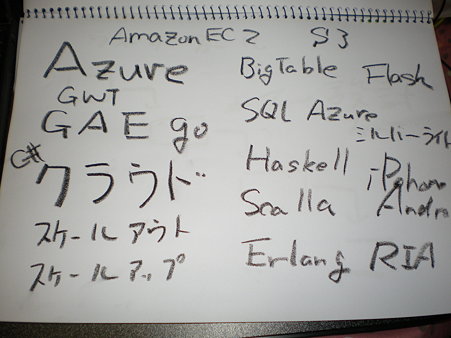 Amazon EC2 S3
Azure
GWT
GAE go
C#
クラウド
スケールアウト
スケールアップ
BigTable Flash
SQL Azure
シルバーライト
Haskell iPhone
Scalla Andro
Erlang RIA